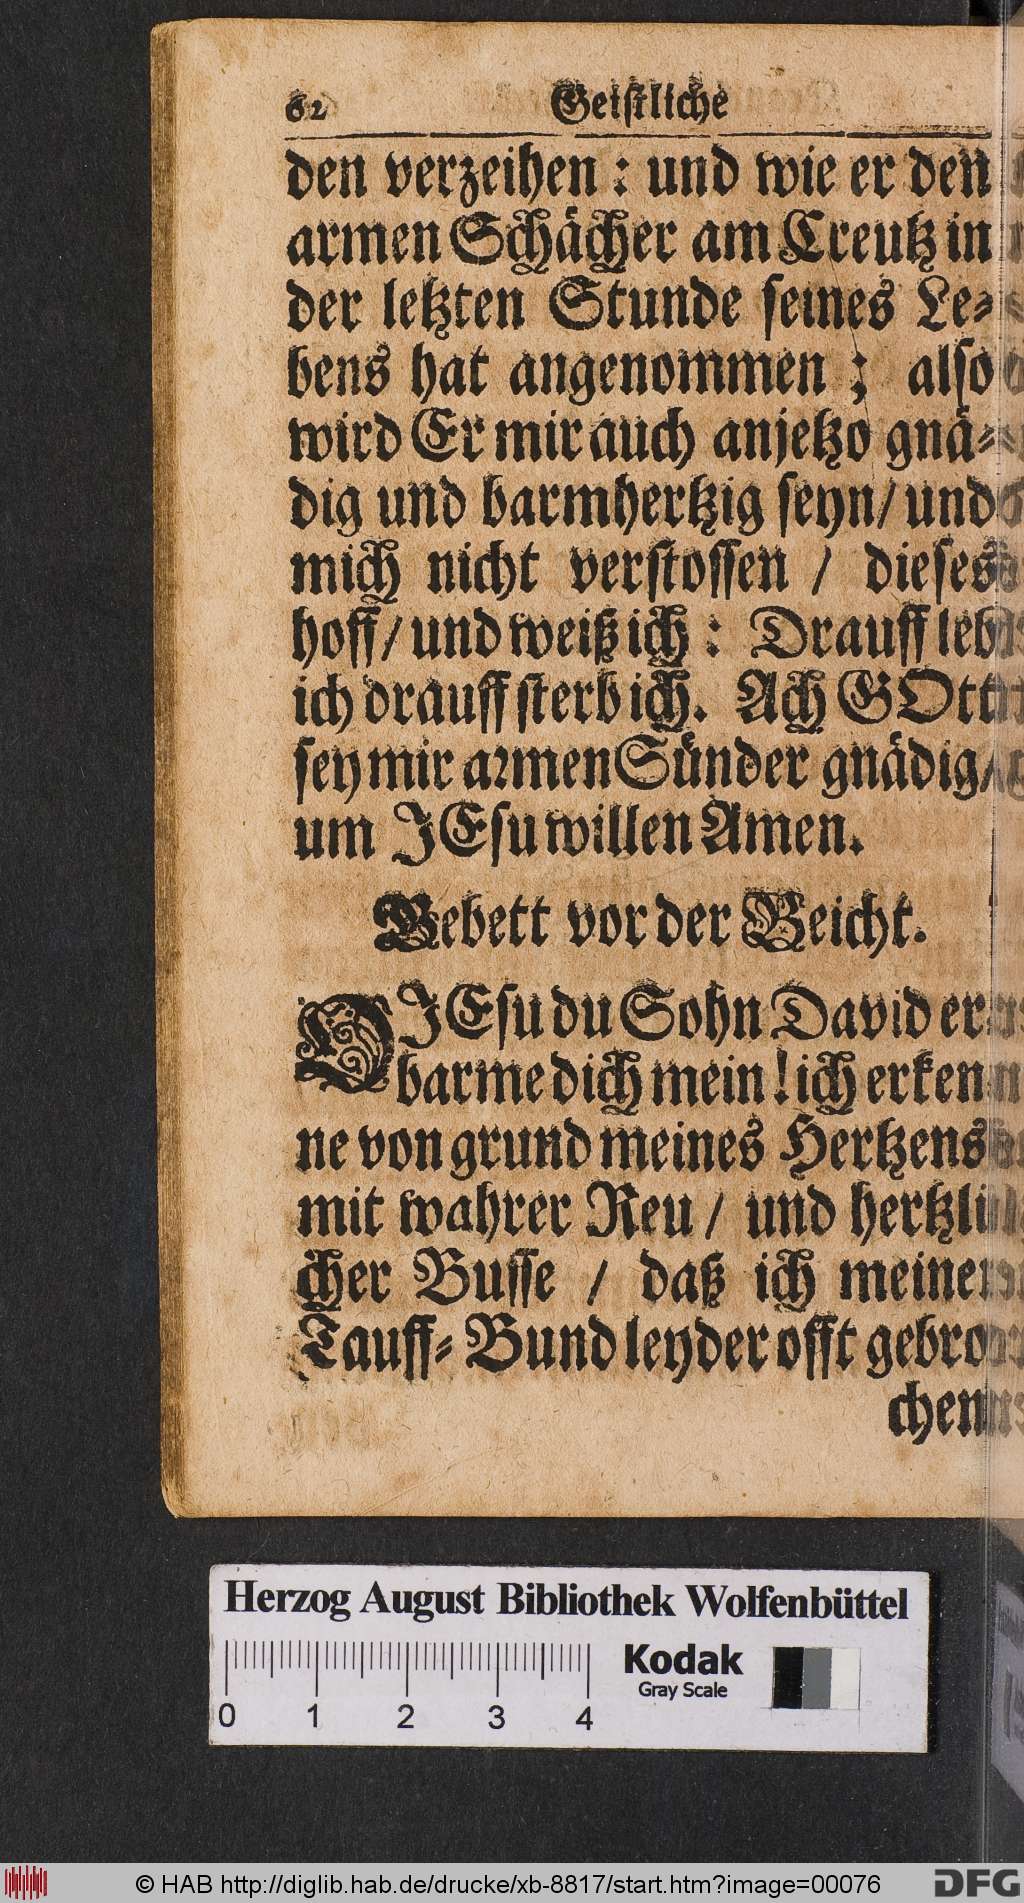 62 Geistliche
den verzeihen : und wie er den
armen Schächer am Creutz in
der letzten Stunde seines Le-
bens hat angenommen ; also
wird Er mir auch anjetzo gnä-
dig und barmhertzig seyn/ und
mich nicht verstossen / dieses
hoff/ und weiß ich : Drauff leb
ich drauff sterb ich. Ach GOtt
sey mir armen Sünder gnädig/
um JEsu willen Amen.
Gebett vor der Beicht.
O JEsu du Sohn David er-
barme dich mein ! ich erken-
ne von grund meines Hertzens
mit wahrer Reu / und hertzli-
cher Busse / daß ich meinen
Tauff-Bund leyder offt gebro-
chen
Herzog August Bibliothek Wolfenbüttel
Kodak
Gray Scale
0 1 2 3 4
© HAB http://diglib.hab.de/drucke/xb-8817/start.htm?image=00076
DFG